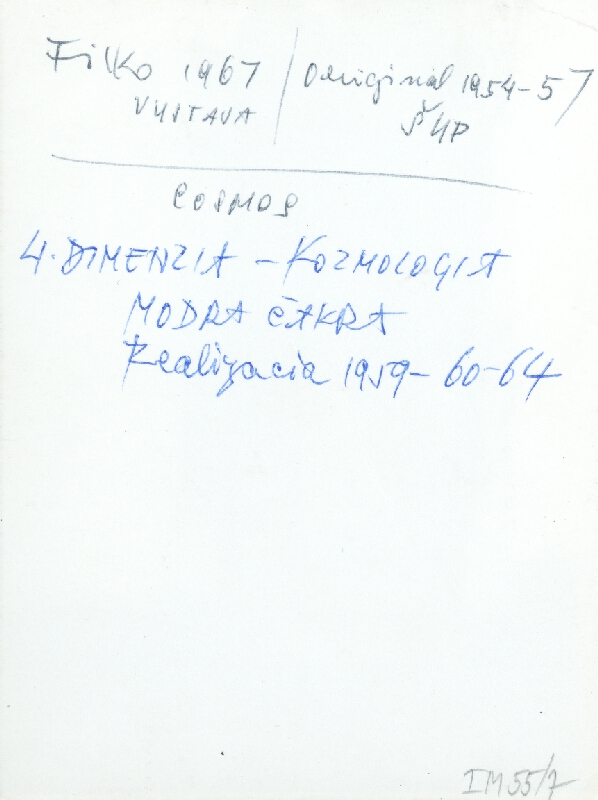 Filko 1967 / Original 1954-57
VYSTAVA ŠUP
COSMOS
4. DIMENZIA - KOZMOLOGIA
MODRA ČAKRA
Realizacia 1959-60-64
IM55/7